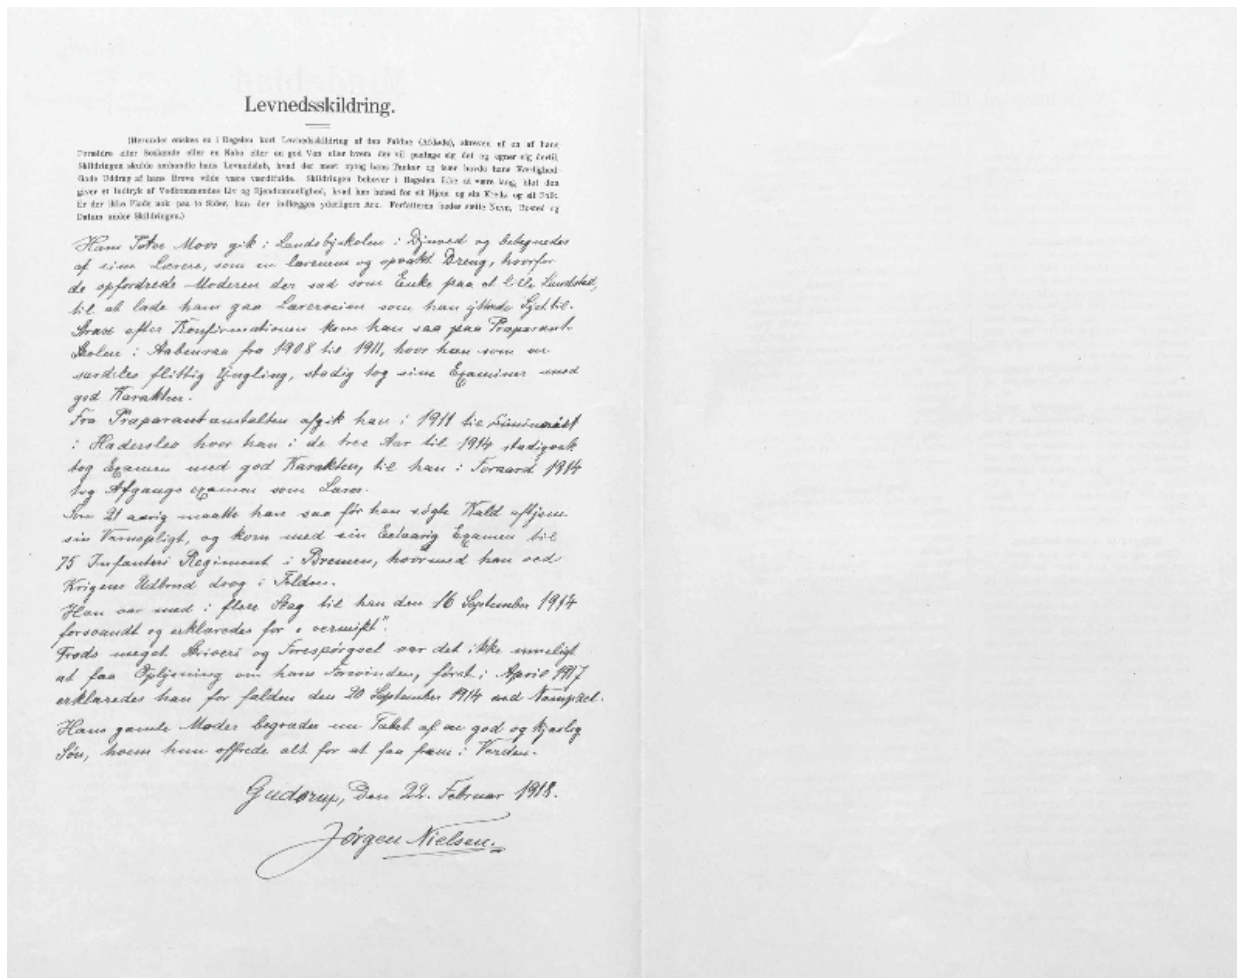 Levnedsskildring.
(Herunder ønskes en i Regelen kort Levnedsskildring af den Faldne (Afdøde), skreven af en af hans
Forældre eller Søskende eller en Nabo eller en god Ven eller hvem der vil paatage sig det og egner sig dertil.
Skildringen skulde omhandle hans Levnedsløb, hvad der mest optog hans Tanker og især havde hans Kærlighed.
Gode Uddrag af hans Breve vilde være værdifulde. Skildringen behøver i Regelen ikke at være lang, blot den
giver et Indtryk af Vedkommendes Liv og Ejendommelighed, hvad han betød for sit Hjem og sin Kreds og sit Folk.
Er der ikke Plads nok paa to Sider, kan der indlægges yderligere Ark. Forfatteren bedes sætte Navn, Bosted og
Datum under Skildringen.)
Hans Peter Moos gik i Landsbyskolen i Djuved og betegnedes
af sine Lærere, som en lærenem og opvakt Dreng, hvorfor
de opfordrede Moderen der sad som Enke paa et lille Landsted,
til at lade ham gaa Lærerveien som han yttrede Lyst til.
Strax efter Konfirmationen kom han saa paa Præparant-
skolen i Aabenraa fra 1908 til 1911, hvor han som en
særdeles flittig Yngling, stadig tog sine Examiner med
god Karakter.
Fra Præparantanstalten afgik han i 1911 til Seminariet
i Haderslev hvor han i de tre Aar til 1914 stadigvæk
tog Examen med god Karakter, til han i Foraard 1914
tog Afgangsexamen som Lærer.
Som 21 aarig maatte han saa før han søgte Kald aftjene
sin Værnepligt, og kom med sin Eetaarig Examen til
75 Infanteri Regiment i Bremen, hvormed han ved
Krigens Udbrud drog i Felden.
Han var med i flere Slag til han den 16 September 1914
forsvandt og erklæredes for „vermißt".
Trods meget Skriveri og Forespørgsel var det ikke mueligt
at faa Oplysning om hans Forsvinden, først i April 1917
erklæredes han for falden den 20 September 1914 ved
Hans gamle Moder begræder nu Tabet af en god og kjærlig
Søn, hvem hun offrede alt for at faa frem i Verden.
Guderup, Den 22. Februar 1918.
Jørgen Nielsen.